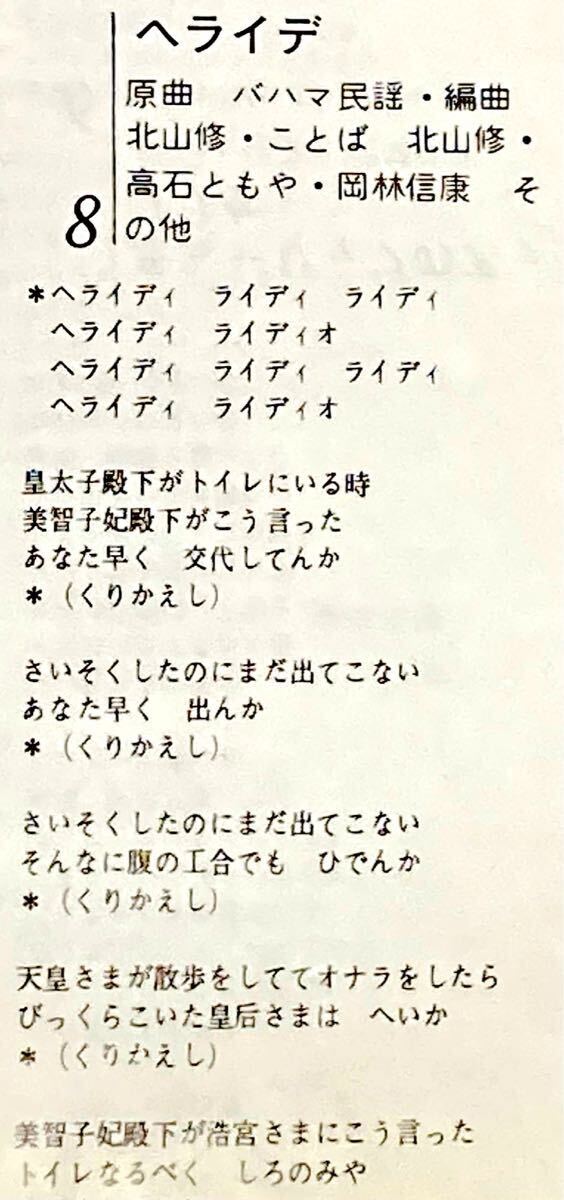 ヘライデ
原曲　バハマ民謡・編曲
北山修・ことば　北山修・
高石ともや・岡林信康　そ
の他
8
*ヘライディ　ライディ　ライディ
ヘライディ　ライディオ
ヘライディ　ライディ　ライディ
ヘライディ　ライディオ
皇太子殿下がトイレにいる時
美智子妃殿下がこう言った
あなた早く　交代してんか
*（くりかえし）
さいそくしたのにまだ出てこない
あなた早く　出んか
*（くりかえし）
さいそくしたのにまだ出てこない
そんなに腹の工合でも　ひでんか
*（くりかえし）
天皇さまが散歩をしててオナラをしたら
びっくらこいた皇后さまは　へいか
*（くりかえし）
美智子妃殿下が浩宮さまにこう言った
トイレなるべく　しろのみや